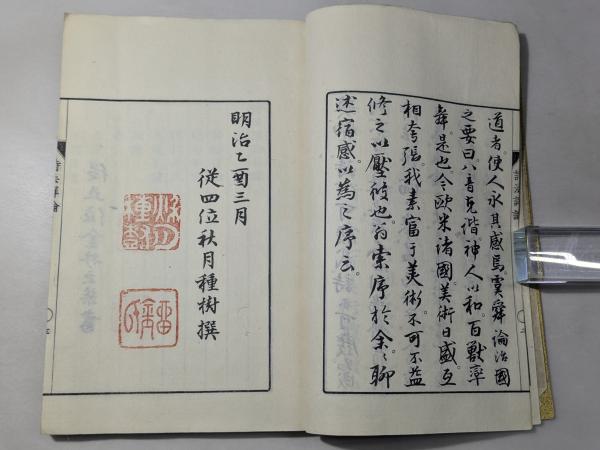 道者使人永其感焉虞舜論治國
之要曰八音克偕神人以和百獸率
舞是也今欧米諸國美術日盛互
相夸張我素富于美術不可不益
修之以壓彼也翁索序於余〻聊
述宿感以為之序云
明治乙酉三月
從四位秋月種樹撰